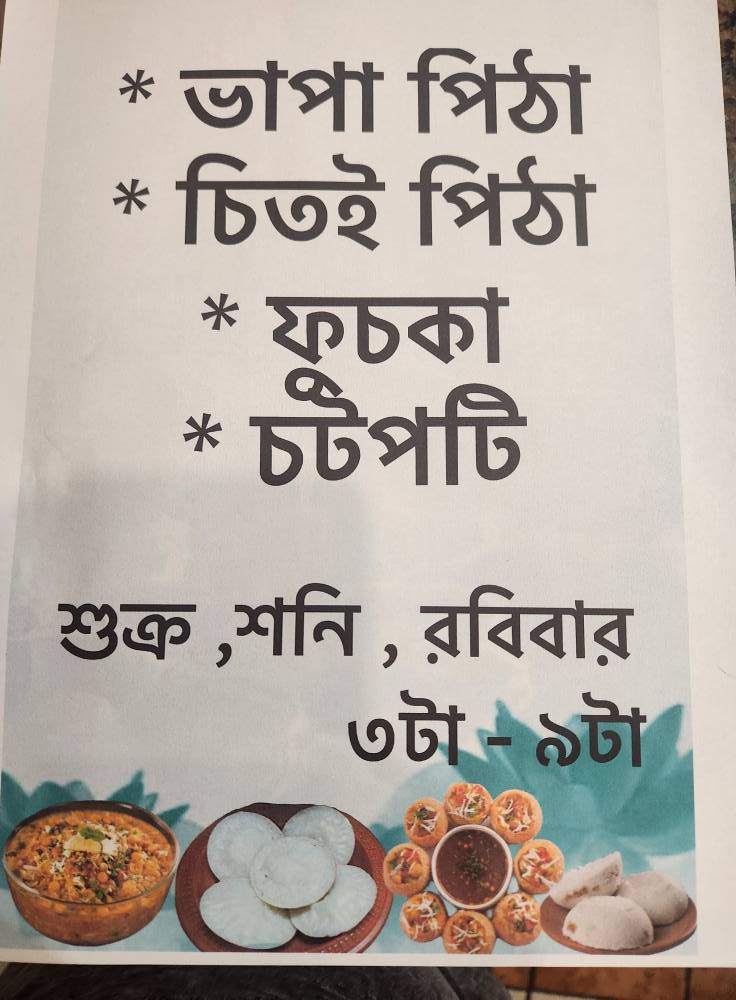 * ভাপা পিঠা
* চিতই পিঠা
* ফুচকা
* চটপটি
শুক্র ,শনি , রবিবার
৩টা - ৯টা